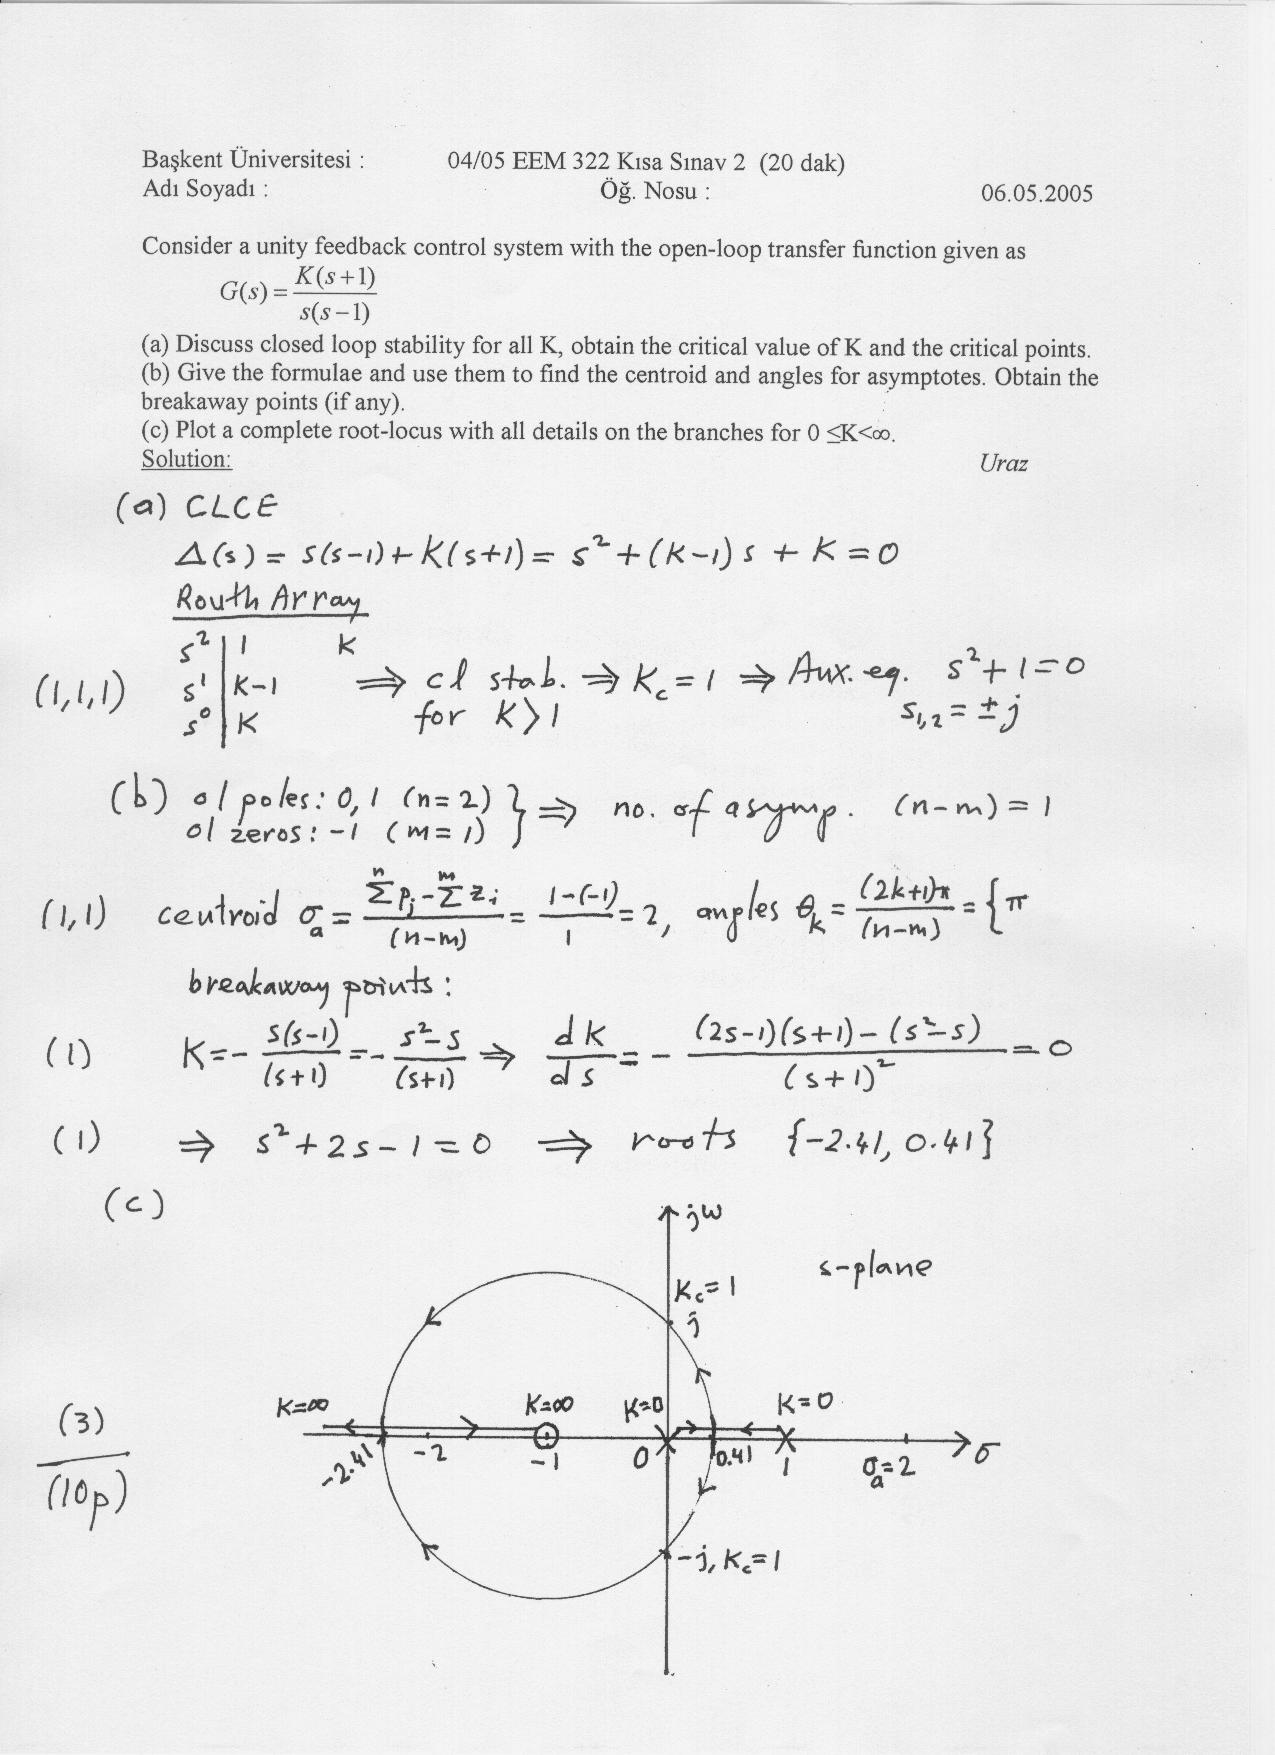 Başkent Üniversitesi : 04/05 EEM 322 Kısa Sınav 2 (20 dak)
Adı Soyadı : Öğ. Nosu : 06.05.2005
Consider a unity feedback control system with the open-loop transfer function given as
G(s) = K(s+1) / s(s−1)
(a) Discuss closed loop stability for all K, obtain the critical value of K and the critical points.
(b) Give the formulae and use them to find the centroid and angles for asymptotes. Obtain the
breakaway points (if any).
(c) Plot a complete root-locus with all details on the branches for 0 ≤K<∞.
Solution: Uraz
(a) CLCE
Δ(s) = s(s-1)+K(s+1) = s² + (K-1)s + K = 0
Routh Array
s² | 1 K
(1,1,1) s¹ | K-1 ⇒ cl stab. ⇒ K_c = 1 ⇒ Aux. eq. s²+1=0
s⁰ | K for K>1 s₁,₂ = ±j
(b) ol poles: 0, 1 (n=2) } ⇒ no. of asymp. (n-m) = 1
ol zeros: -1 (m=1)
(1,1) centroid σ_a = (Σⁿ p_j - Σᵐ z_i) / (n-m) = (1-(-1)) / 1 = 2, angles θ_k = (2k+1)π / (n-m) = { π
breakaway points :
(1) K = - s(s-1) / (s+1) = - (s²-s) / (s+1) ⇒ dK / ds = - ((2s-1)(s+1) - (s²-s)) / (s+1)² = 0
(1) ⇒ s² + 2s - 1 = 0 ⇒ roots {-2.41, 0.41}
(c)
jω
s-plane
K_c = 1
j
K=∞ K=∞ K=0 K=0
(3)
-2.41 -2 -1 0 0.41 1 σ_a=2 σ
(10p)
-j, K_c=1